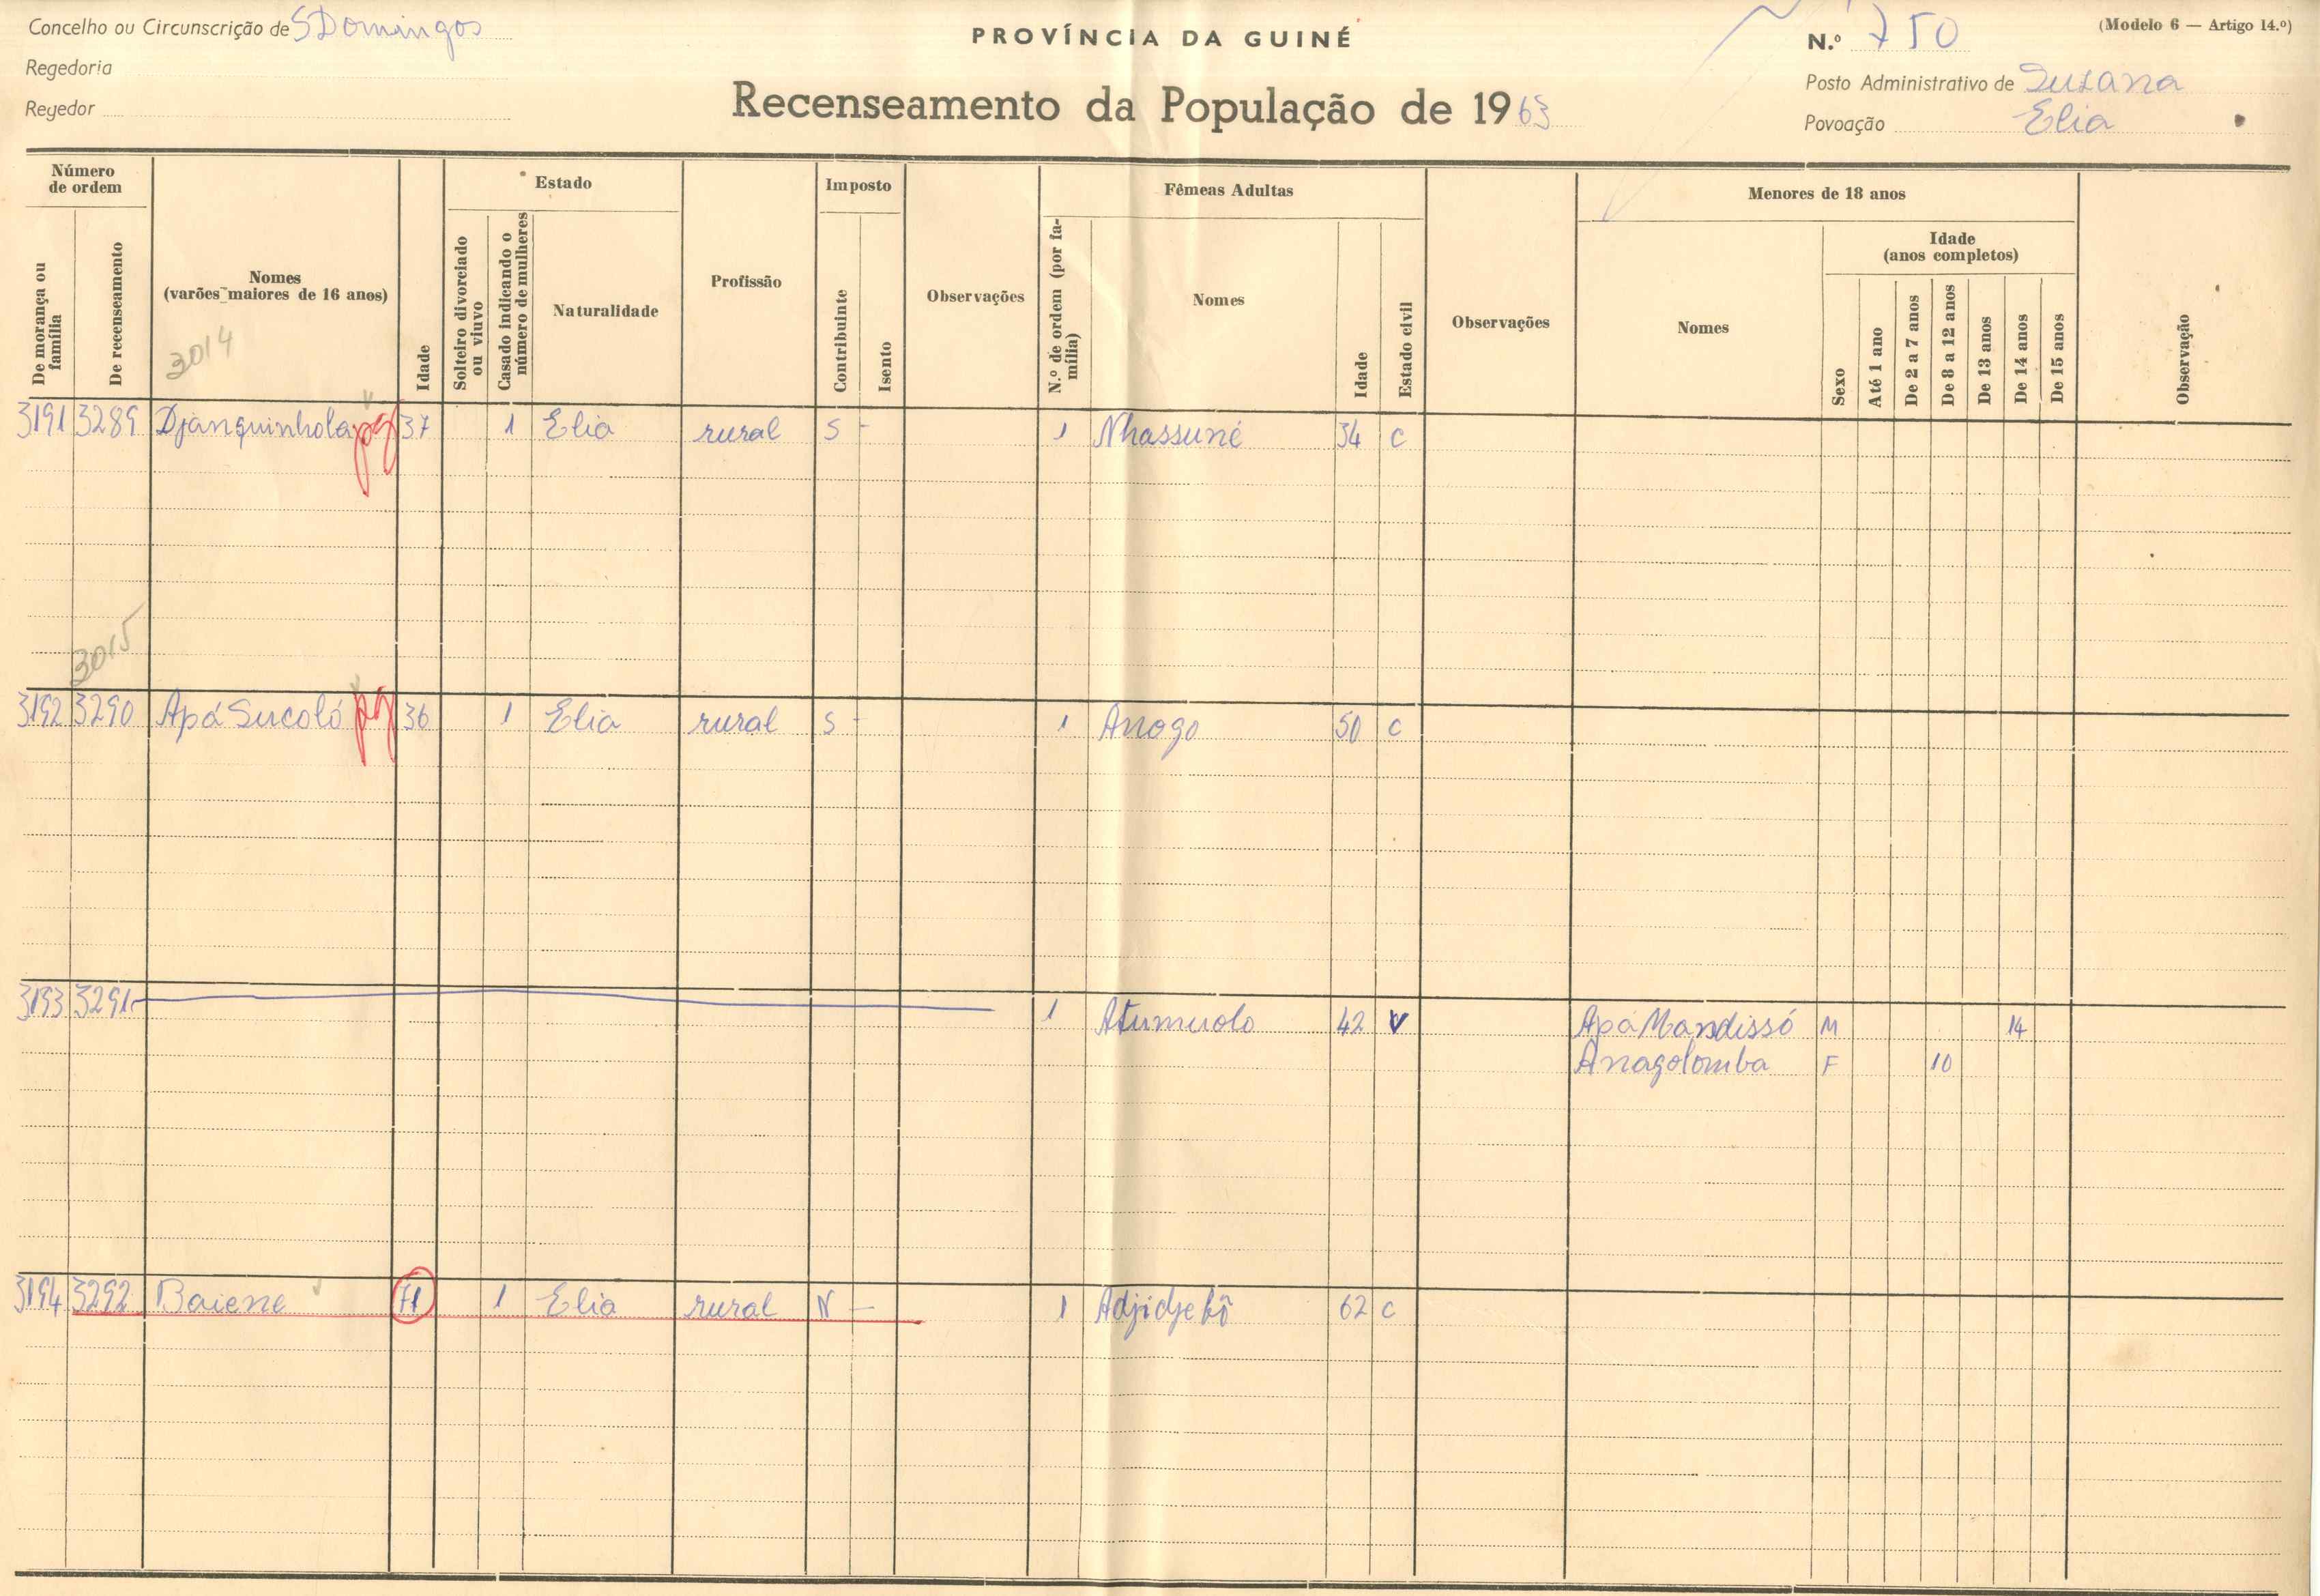 Concelho ou Circunscrição de S Domingos
PROVÍNCIA DA GUINÉ
N.º 750
(Modelo 6 — Artigo 14.º)
Regedoria
Regedor
Recenseamento da População de 1963
Posto Administrativo de Susana
Povoação Elia
Número de ordem
De morança ou família
De recenseamento
Nomes (varões maiores de 16 anos)
Idade
Estado
Solteiro divorciado ou viuvo
Casado indicando o número de mulheres
Naturalidade
Profissão
Imposto
Contribuinte
Isento
Observações
Fêmeas Adultas
N.º de ordem (por família)
Nomes
Idade
Estado civil
Observações
Menores de 18 anos
Nomes
Sexo
Idade (anos completos)
Até 1 ano
De 2 a 7 anos
De 8 a 12 anos
De 13 anos
De 14 anos
De 15 anos
Observação
3014
3191 3289 Djanquinhola pg 37 1 Elia rural S - 1 Nhassuné 34 C
3015
3192 3290 Apá Sucoló pg 36 1 Elia rural S - 1 Anogo 50 C
3193 3291 1 Atumuolo 42 V Apá Mandissó M 14
Anagolomba F 10
3194 3292 Baiene 71 1 Elia rural N - 1 62 C